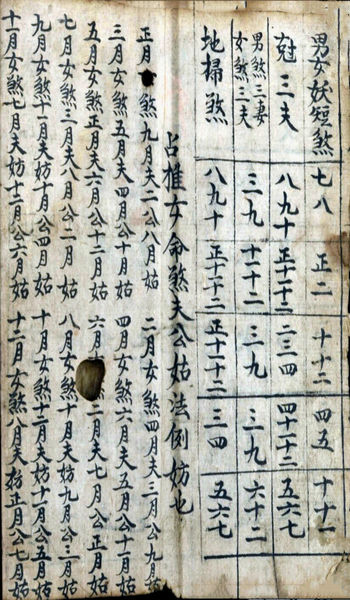 男女妖短煞 七八 正二 十十二 四五 十十一
尅三夫 八九十 正十一十二 二三四 四十一十二 五六七
男煞三妻 
女煞三夫 三九 十一十二 三九 三九 六十二
地掃煞 八九十 正十一十二 正十一十二 三四 五六七
占推女命煞夫公姑法例妨也
正月煞九月夫二公八月姑 二月女煞四月夫三月公九月姑
三月女煞五月夫四月公十月姑 四月女煞六月夫五月公十一月姑
五月女煞正月夫六月公十二月姑 六月二月夫七月公正月姑
七月女煞三月夫八月公二月姑 八月女煞十月夫妨九月公三月姑
九月女煞十一月夫妨十月公四月姑 十月女煞十二月夫妨十一月公五月姑
十一月女煞七月夫妨十二月公六月姑 十二月女煞八月夫妨正月公七月姑